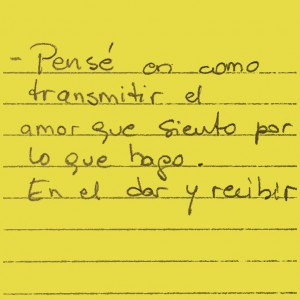 - Pensé en como
transmitir el
amor que siento por
lo que hago.
En el dar y recibir